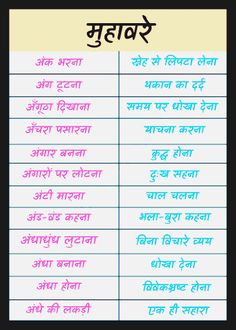 मुहावरे
अंक भरना स्नेह से लिपटा लेना
अंग टूटना थकान का दर्द
अँगूठा दिखाना समय पर धोखा देना
अँचरा पसारना याचना करना
अंगार बनना क्रुद्ध होना
अंगारों पर लोटना दुःख सहना
अंटी मारना चाल चलना
अंड-बंड कहना भला-बुरा कहना
अंधाधुंध लुटाना बिना विचारे व्यय
अंधा बनाना धोखा देना
अंधा होना विवेकभ्रष्ट होना
अंधे की लकड़ी एक ही सहारा